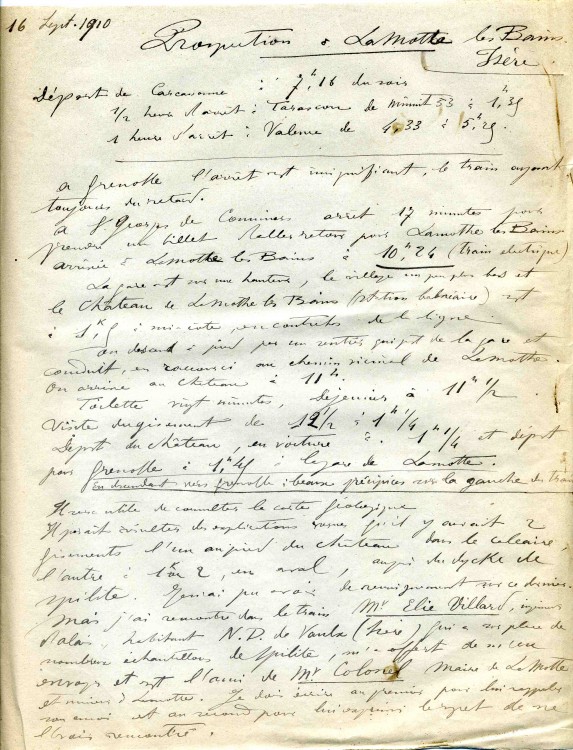 16 Sept. 1910
Prospection à La Motte les Bains.
Isère.
Départ de Carcassonne : 7h,16 du soir
1/2 heure d'arrêt : Tarascon de minuit 53 à 1h,35
1 heure d'arrêt : Valence de 4,33 à 5h,25.
a Grenoble l'arrêt est insignifiant, le train ayant
toujours du retard.
a St Georges de Commiers arrêt 17 minutes pour
prendre un billet d'aller retour pour Lamothe les Bains
arrivée à Lamothe les Bains à 10h,24 (train électrique)
La gare est sur une hauteur, le village un peu plus bas et
le Château de La Mothe les Bains (station balnéaire) est
à 1k,5 à mi-côte, en contrebas de la ligne.
On descend à pied par un sentier qui part de la gare et
conduit, en raccourci au chemin vicinal de Lamothe.
On arrive au château à 11h.
Toilette vingt minutes, déjeuner à 11h 1/2.
Visite du gisement de 12 1/2 à 1h 1/4
Départ du château, en voiture à 1h 1/4 et départ
pour Grenoble à 1h,45 à la gare de Lamotte.
En descendant vers Grenoble : beaux précipices sur la gauche du train
Il sera utile de consulter la carte géologique
Il paraît résulter des explications qu'il y aurait 2
gisements l'un au pied du château dans le calcaire,
l'autre à 1k ou 2, en aval, auprès du dyke de
spilite. Je n'ai pu avoir de renseignement sur ce dernier.
Mais j'ai rencontré dans le train Mr Elie Villard,
Palais, habitant N.D. de Vaulx (Isère) qui a sur place de
nombreux échantillons de Spilite, m'a offert de m'en
envoyer et est l'ami de Mr Colonel Maire de La Motte
Lamotte. Je dois écrire au premier pour lui rappeler
son envoi et au second pour lui exprimer le regret de ne
l'avoir rencontré.